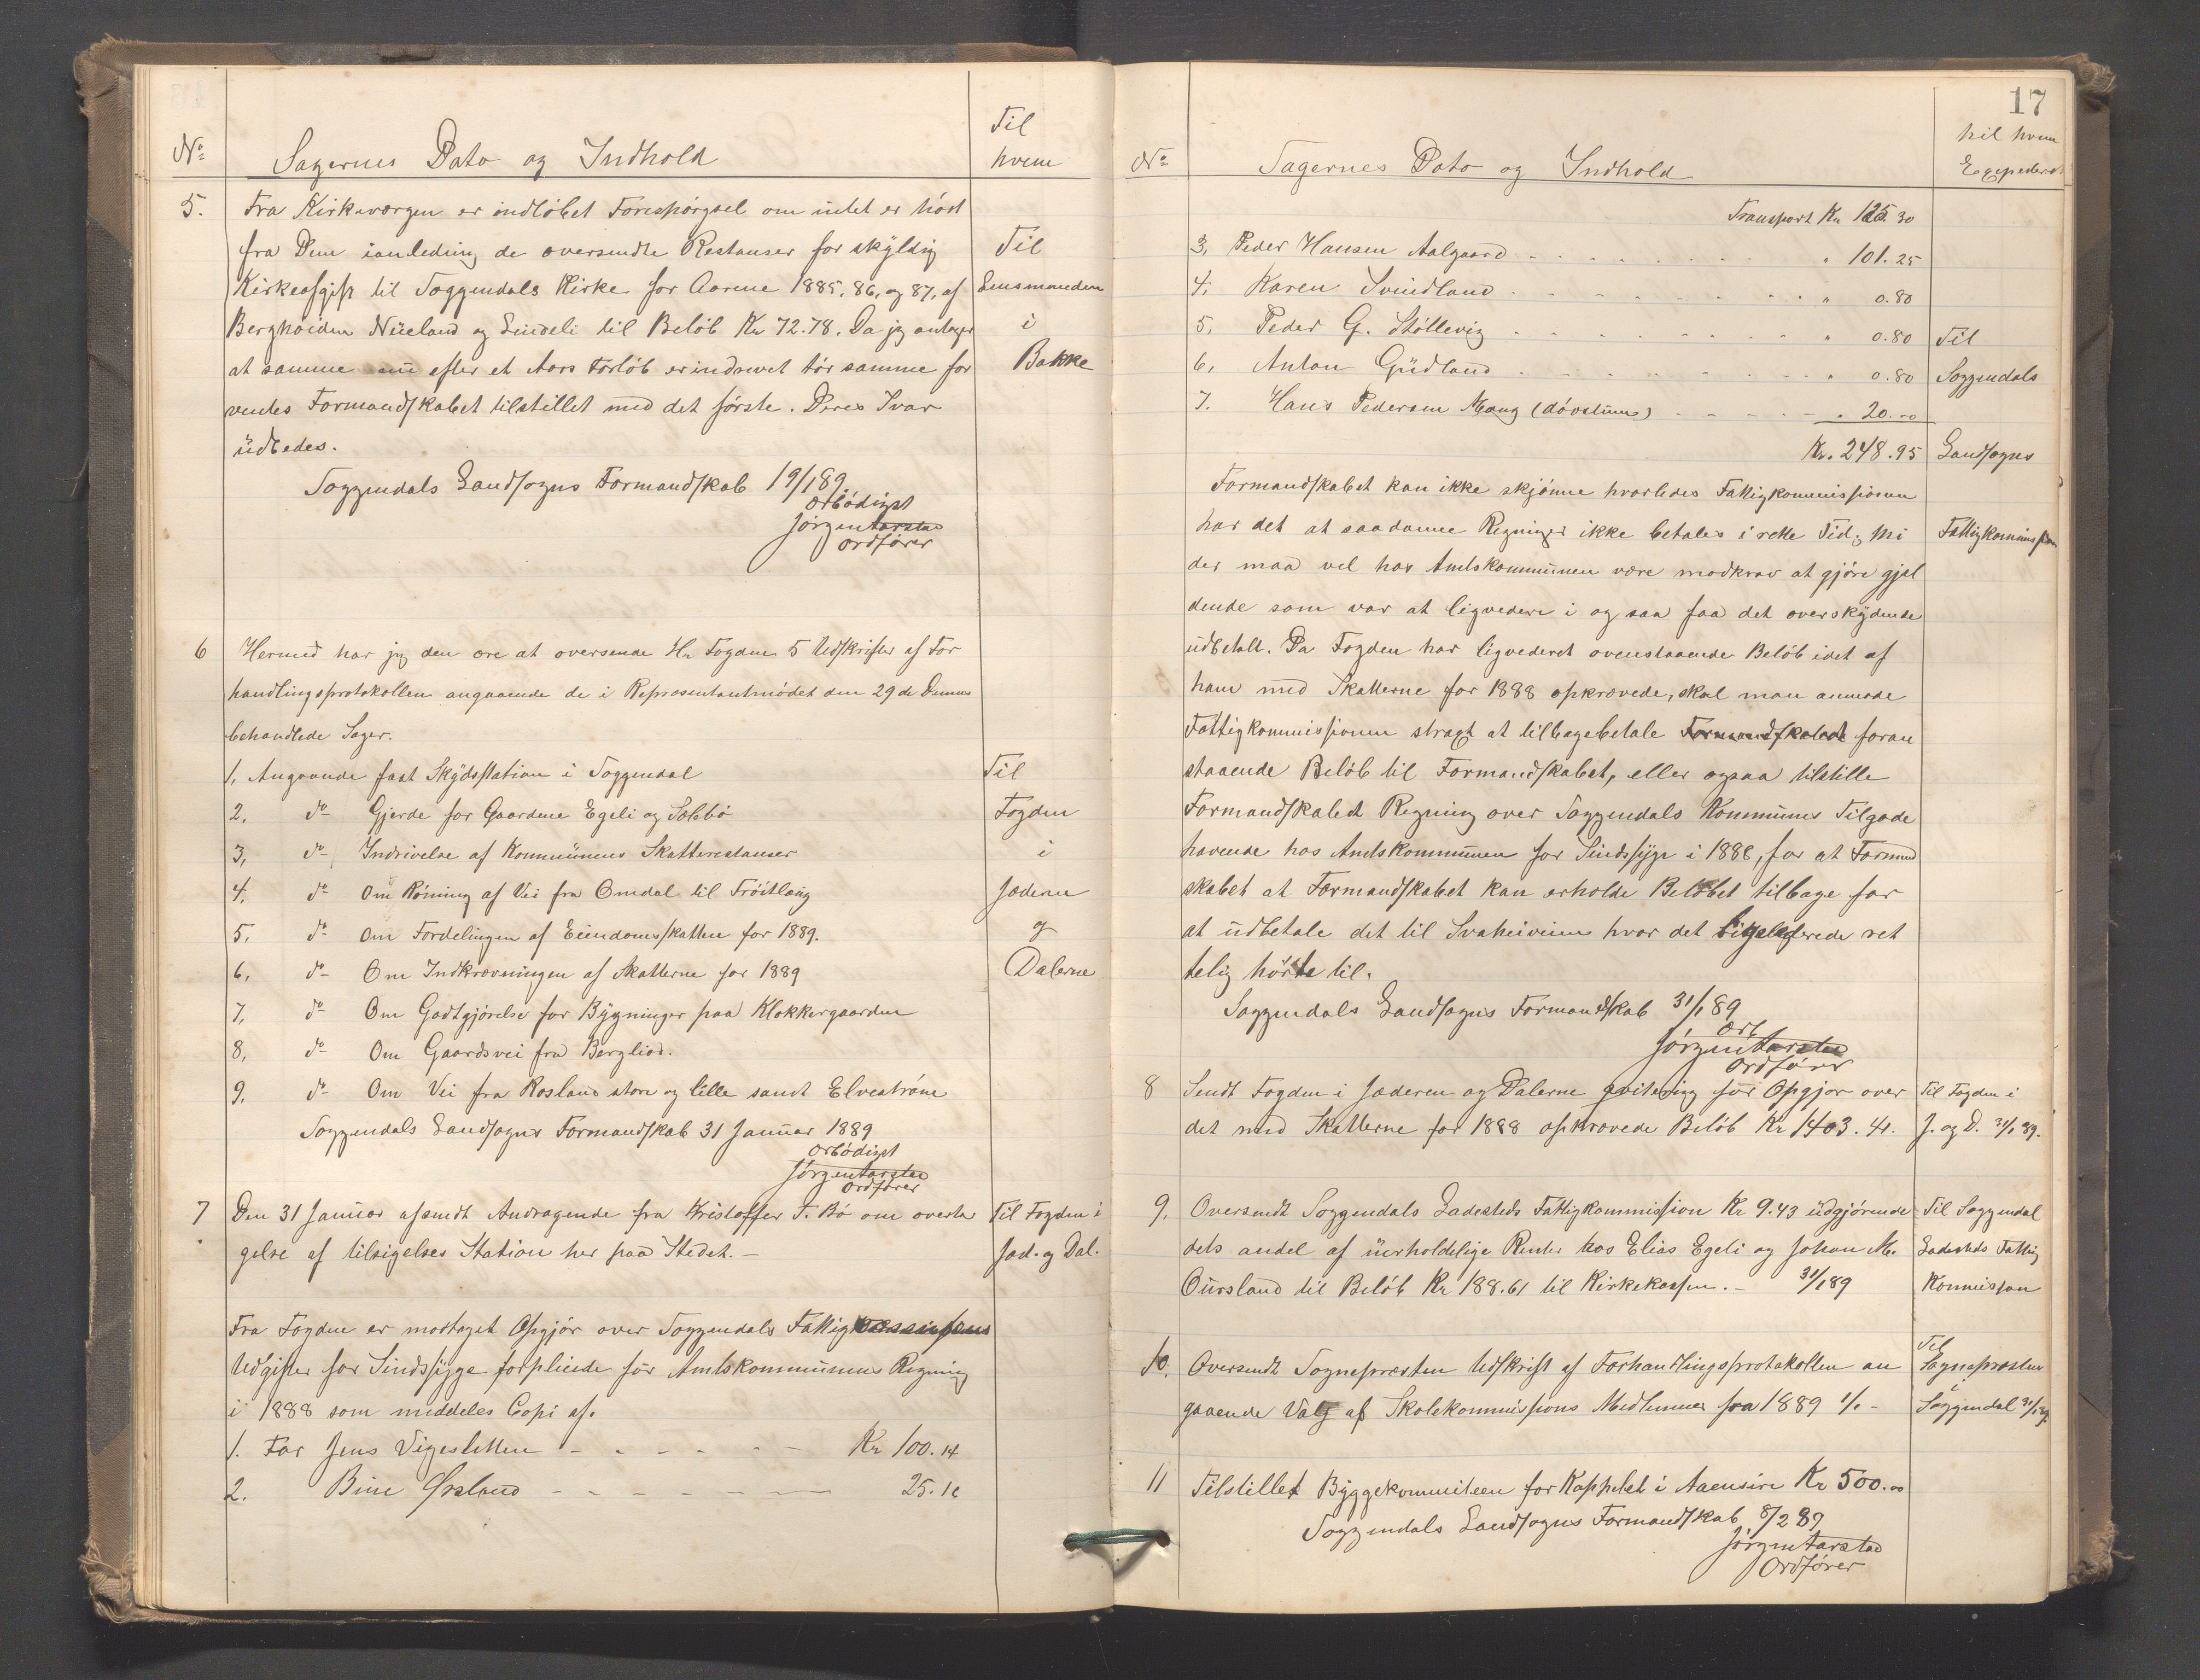 No Sagernes Dato og Indhold Til hvem
5. Fra Kirkeværgen er indløbet Forespørgsel om intet er hørt
fra Dem ianledning de oversendte Restanser for skyldig
Kirkeafgift til Soggendals Kirke for Aarene 1885, 86, og 87, af
Berghoiden Nüeland og Lindeli til Beløb Kr 72.78. Da jeg antager
at samme nu efter et Aars Forløb er indrevet tør samme for
ventes Formandskabet tilstillet med det første. Deres Svar
üdbedes.
Til
Lensmanden
i
Bakke
Soggendals Landsogns Formandskab 19/1 89
Ærbødigst
Jørgen Aarstad
Ordfører
6 Hermed har jeg den ære at oversende Hr Fogden 5 Udskrifter af For
handlingsprotokollen angaaende de i Repræsentantmødet den 29 de Dennes
behandlede Sager.
1. Angaaende fast Skydsstation i Soggendal
2. do Gjerde for Gaardene Egeli og Sølbø
3, do Indrivelse af Kommünens Skatterestanser
4. do Om Røning af Vei fra Omdal til Frøitlaug
5. do Om Fordelingen af Eiendomsskatten for 1889.
6. do Om Indkrævningen af Skatterne for 1889
7, do Om Godtgjørelse for Bygninger paa Klokkergaarden
8, do Om Gaardsvei fra Bergliod.
9. do Om Vei fra Rosland store og lille samt Elvestrøne
Til
Fogden
i
Jæderen
og
Dalerne
Soggendals Landsogns Formandskab 31 Januar 1889
Ærbødigst
Jørgen Aarstad
Ordfører
7 Den 31 Januar afsendt Andragende fra Kristoffer T. Bø om overta
gelse af tilsigelses Station her paa Stedet. –
Til Fogden i
Jæd. og Dal.
Fra Fogden er modtaget Opgjør over Soggendals Fattig
Udgifter for Sindssyge forpleiede for Amtskommunens Regning
i 1888 som meddeles Copi af.
1. For Jens Vigesletten Kr 100.14
2. Bine Ørsland 25.16
17
No Sagernes Dato og Indhold til hvem Expederet
Transport Kr 125.30
3, Peder Hansen Aalgaard " 101.25
4, Karen Svindland " 0.80
5, Peder G. Støllevig " 0.80
6, Anton Güdland " 0.80
7. Hans Pedersen Maug (døvstum) " 20.00
Kr. 248.95
Til
Soggendals
Landsogns
Fattigkommission
Formandskabet kan ikke skjønne hvorledes Fattigkommissionen
har det at saadanne Regninger ikke betales i rette Tid; Mi
der maa vel hos Amtskommunen være modkrav at gjøre gjæl
dende som var at ligvedere i og saa faa det overskydende
udbetalt. Da Fogden har ligvederet ovenstaaende Beløb idet af
ham med Skatterne for 1888 opkrævede, skal man anmode
Fattigkommissionen stragt at tilbagebetale Formandskabet foran
staaende Beløb til Formandskabet, eller ogsaa tilstille
Formandskabet Regning over Soggendals Kommunes Tilgode
havende hos Amtskommunen for Sindssyge i 1888, for at Formand
skabet at Formandskabet kan erholde Beløbet tilbage for
at udbetale det til Svaheiveien hvor det ret
telig hørte til.
Soggendals Landsogns Formandskab 31/1 89
Ærb
Jørgen Aarstad
Ordfører
8 Sendt Fogden i Jæderen og Dalerne qvitering for Opgjør over
det med Skatterne for 1888 opkrævede Beløb Kr 1403.41.
Til Fogden i
J. og D. 31/1 89.
9. Oversendt Soggendals Ladesteds Fattigkommission Kr 9.43 üdgjørende
dets andel af üerholdelige Renter hos Elias Egeli og Johan M.
Oursland til Beløb Kr 188.61 til Kirkekassen. – 31/1 89
Til Soggendal
Ladesteds Fattig
Kommission
10. Oversendt Sognepresten Udskrift af Forhandlingsprotokollen an
gaaende Valg af Skolekommissions Medlemmer fra 1889 1/1 –
Til
Sognepresten
Soggendal 31/1 89
11 Tilstillet Byggekommiteen for Kappelet i Aaensire Kr 500.00
Soggendals Landsogns Formandskab 8/2 89
Jørgen Aarstad
Ordfører